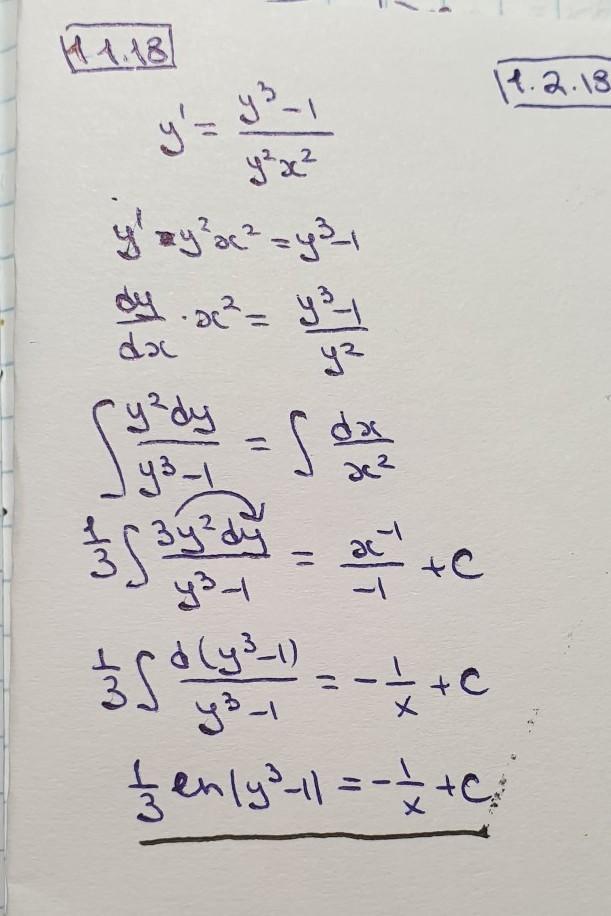 1.1.18
1.2.18
y' = (y³-1)/(y²x²)
y' · y²x² = y³-1
dy/dx · x² = (y³-1)/y²
∫ y²dy/(y³-1) = ∫ dx/x²
1/3 ∫ 3y²dy/(y³-1) = x⁻¹/-1 + C
1/3 ∫ d(y³-1)/(y³-1) = -1/x + C
1/3 ln|y³-1| = -1/x + C